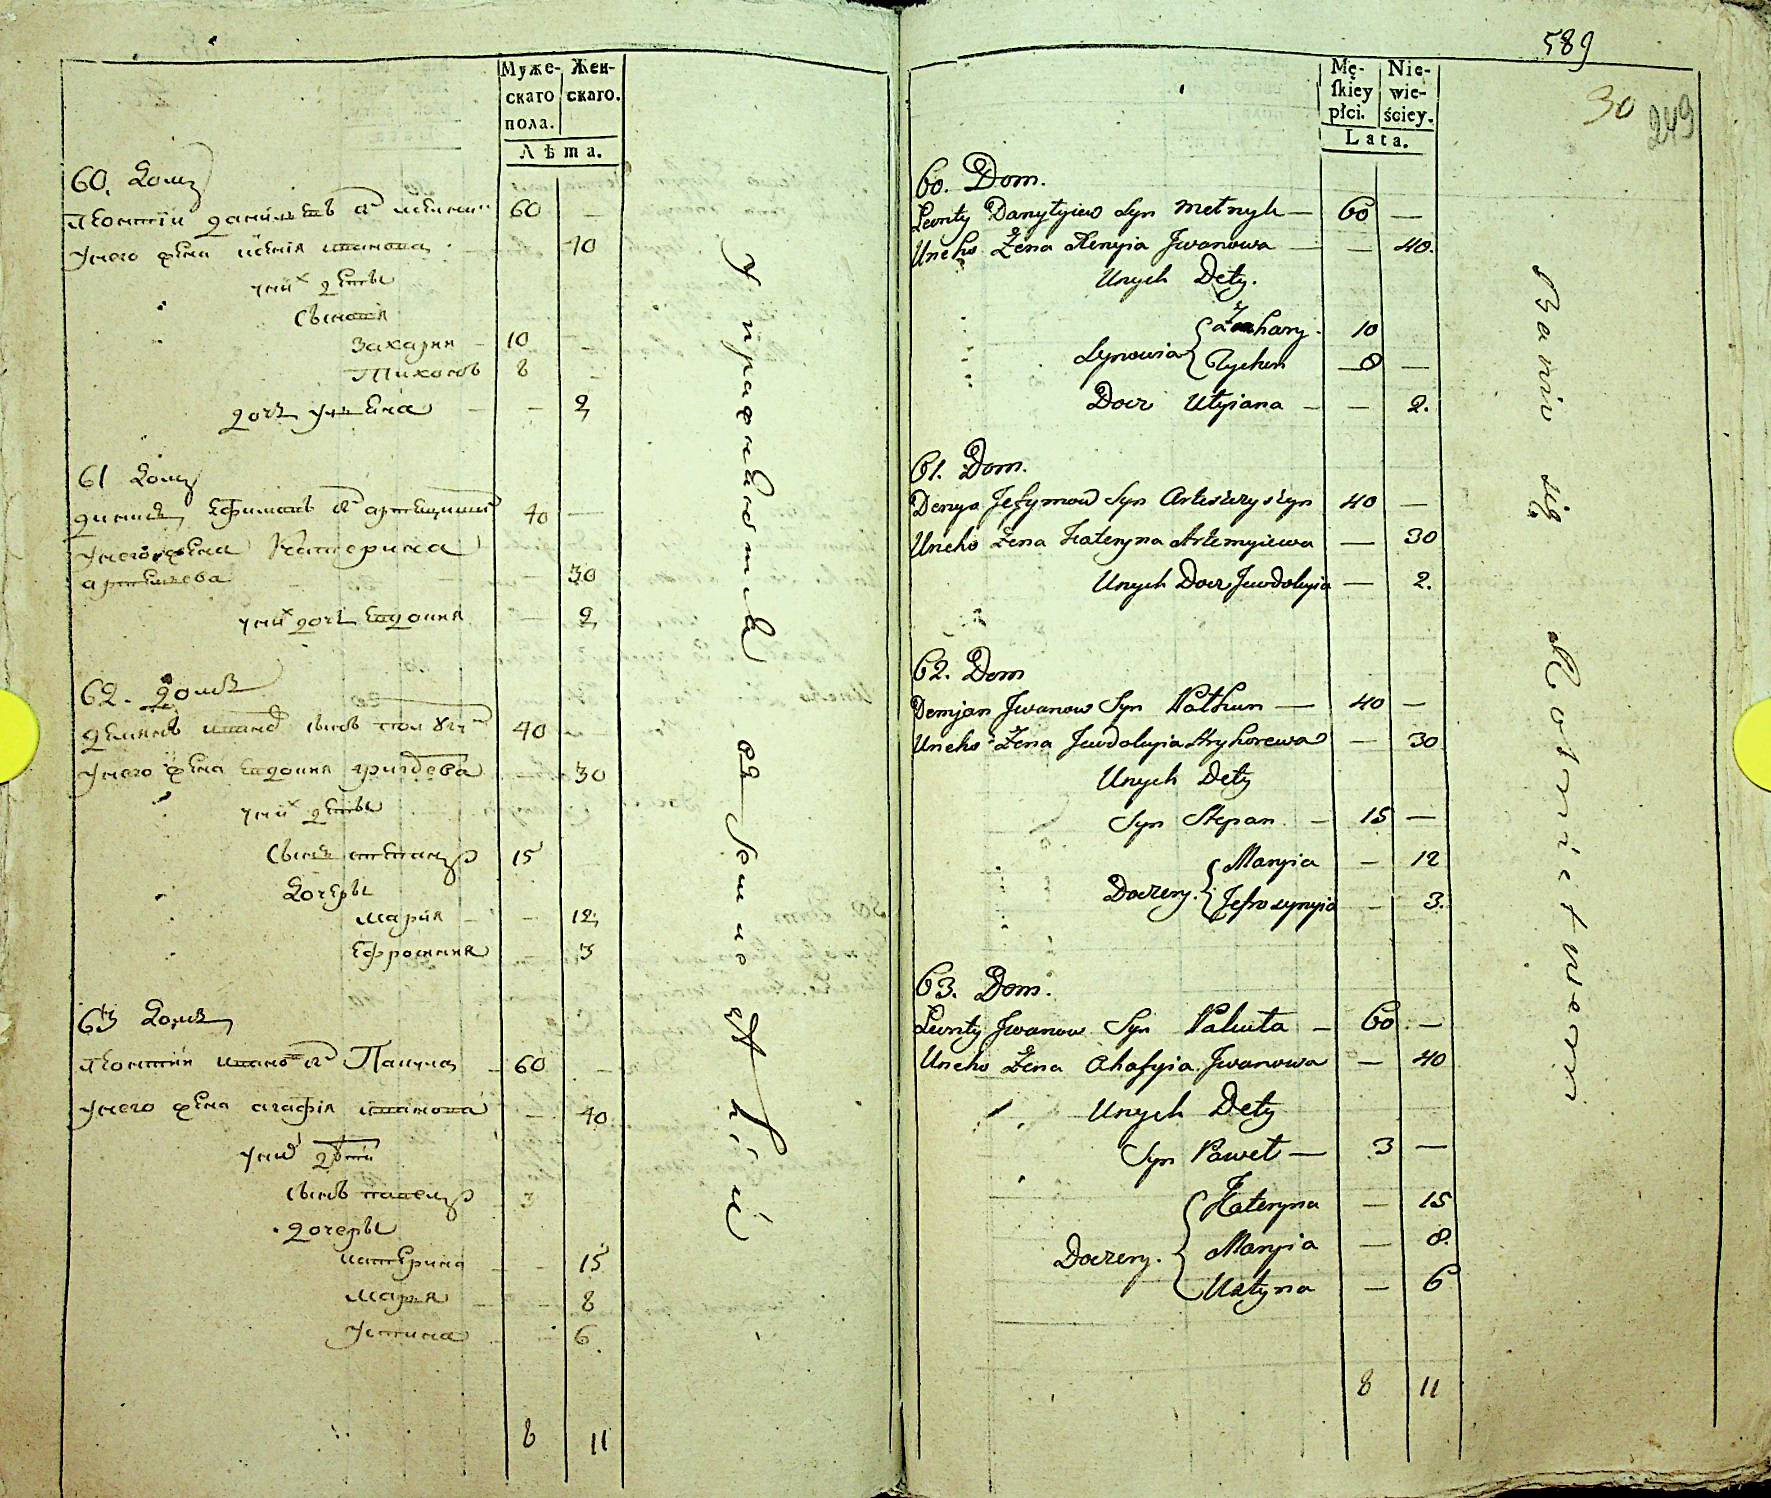 Муже-
скаго
пола.
Жен-
скаго.
Лѣта.
60. Домъ
Леонтіи Данилевъ сᲂ̃ мелник 60 —
унего жена ксенія иванова 40
уних дѣти
сыновя
Захарии 10 —
Тихонъ 8 —
дочь улѣяна — 2
61 Домъ
Ефимовъ 40 —
унего жена Катерина
артемиева — 30
уних дочь евдокия — 2
62. домъ
демянъ иванов сынъ 40 —
унего жена евдокия григорева — 30
уних дѣти
сынъ степанъ 15
дочеры
Мария — 12
Ефросиния 3
63 домъ
Леонтий иванов Пакула 60 —
унего жена агафія иванова — 40
уних дѣти
сынъ павелъ 3
дочеры
катерина — 15
Мария — 8
Устина — 6
8 11
589
30
249
Mę-
skiey
płci.
Nie-
wie-
ściey.
Lata.
60. Dom.
Leonty Danyłyiew Syn Melnyk — 60 —
Uneho Żena Xenyia Jwanowa — — 40.
Unych Dety.
Synowia Zachary. 10
Tychon — 8 —
Docz Ulyiana — — 2.
61. Dom.
Denys Jefymow Syn 40 —
Uneho Żena Kateryna Artemyiewa — 30
Unych Docz Jewdokyia — 2.
62. Dom
Demjan Jwanow Syn — 40 —
Uneho Żena Jewdokyia Hryhorewa — 30
Unych Dety
Syn Stepan — 15 —
Doczery. Maryia — 12
Jefrosynyia — 3.
63. Dom.
Leonty Jwanow Syn Pakuła — 60 —
Uneho Żena Ahafyia Jwanowa — 40
Unych Dety
Syn Paweł — 3 —
Doczery. Kateryna — 15
Maryia — 8.
Ustyna — 6
8 11
Bawią się Rolnictwem